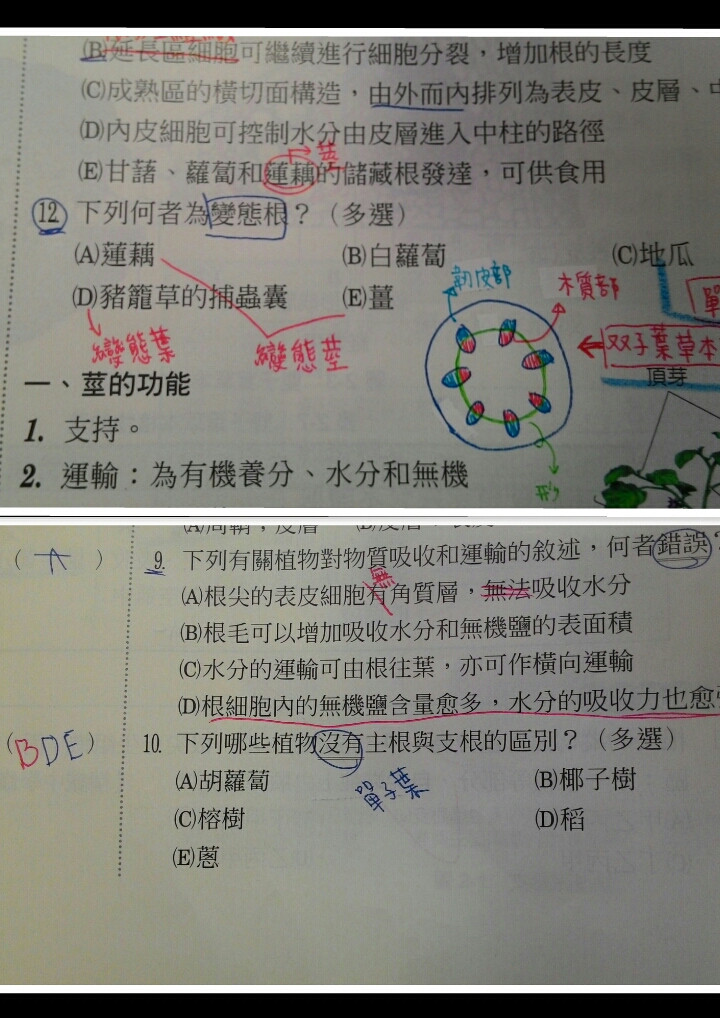 (B)延長區細胞可繼續進行細胞分裂，增加根的長度
(C)成熟區的橫切面構造，由外而內排列為表皮、皮層、中
(D)內皮細胞可控制水分由皮層進入中柱的路徑
莖
(E)甘藷、蘿蔔和蓮藕的儲藏根發達，可供食用
12 下列何者為變態根？（多選）
(A)蓮藕 (B)白蘿蔔 (C)地瓜
(D)豬籠草的捕蟲囊 (E)薑
韌皮部 木質部
變態葉 變態莖 双子葉草本
一、莖的功能 頂芽
1. 支持。
2. 運輸：為有機養分、水分和無機
( A ) 9. 下列有關植物對物質吸收和運輸的敘述，何者錯誤？
無
(A)根尖的表皮細胞有角質層，無法吸收水分
(B)根毛可以增加吸收水分和無機鹽的表面積
(C)水分的運輸可由根往葉，亦可作橫向運輸
(D)根細胞內的無機鹽含量愈多，水分的吸收力也愈強
(BDE) 10. 下列哪些植物沒有主根與支根的區別？（多選）
(A)胡蘿蔔 單子葉 (B)椰子樹
(C)榕樹 (D)稻
(E)蔥